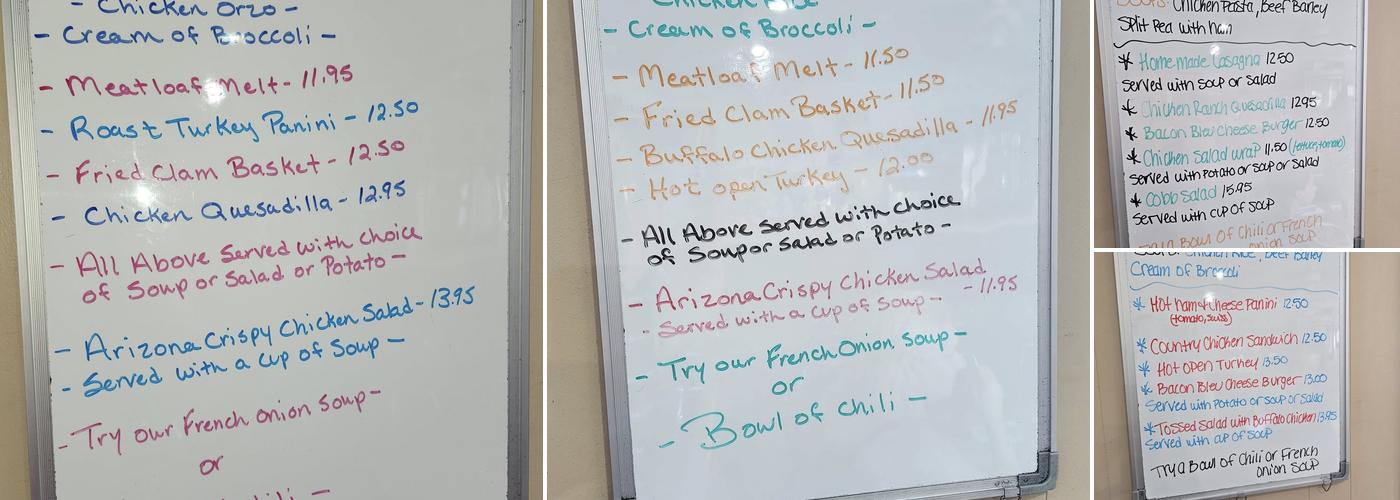 - Chicken Orzo -
- Cream of Broccoli -
- Meatloaf Melt - 11.95
- Roast Turkey Panini - 12.50
- Fried Clam Basket - 12.50
- Chicken Quesadilla - 12.95
- All Above Served with choice
of Soup or Salad or Potato -
- Arizona Crispy Chicken Salad - 13.95
- Served with a cup of Soup -
- Try our French Onion Soup -
or
Chicken Rice
- Cream of Broccoli -
- Meatloaf Melt - 11.50
- Fried Clam Basket - 11.50
- Buffalo Chicken Quesadilla - 11.95
- Hot open Turkey - 12.00
- All Above Served with choice
of Soup or Salad or Potato -
- Arizona Crispy Chicken Salad
- 11.95
- Served with a cup of Soup -
- Try our French Onion Soup -
or
- Bowl of Chili -
Chicken Pasta, Beef Barley
Split Pea with Ham
* Homemade Lasagna 12.50
Served with soup or salad
* Chicken Ranch Quesadilla 12.95
* Bacon Bleu Cheese Burger 12.50
* Chicken Salad wrap 11.50 (lettuce, tomato)
Served with Potato or soup or salad
* Cobb Salad 15.95
Served with cup of soup
Try a Bowl of Chili or French
onion soup
Cream of Broccoli
* Hot ham & cheese Panini 12.50
(tomato, swiss)
* Country Chicken Sandwich 12.50
* Hot Open Turkey 13.50
* Bacon Bleu Cheese Burger 13.00
Served with Potato or soup or salad
* Tossed Salad with Buffalo Chicken 13.95
Served with cup of soup
Try a Bowl of Chili or French
onion soup